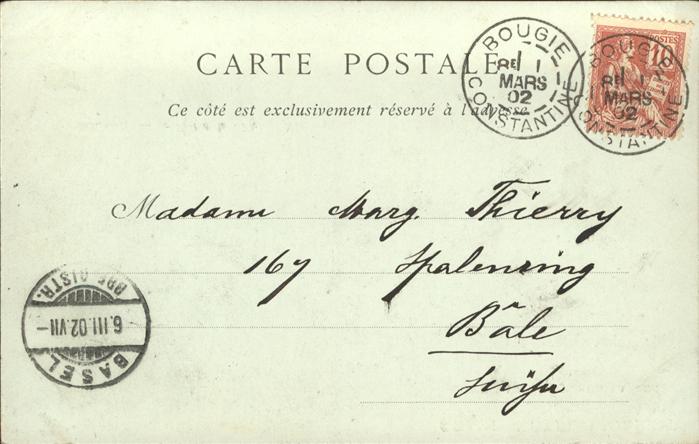 CARTE POSTALE
Ce côté est exclusivement réservé à l'adresse
BOUGIE
RE 1
MARS
02
CONSTANTINE
POSTES
10
BOUGIE
RE 1
MARS
02
CONSTANTINE
Madame Marg. Thierry
167 Spalenring
Bâle
Suisse
BRF. DISTR.
6.III.02.VII-
BASEL